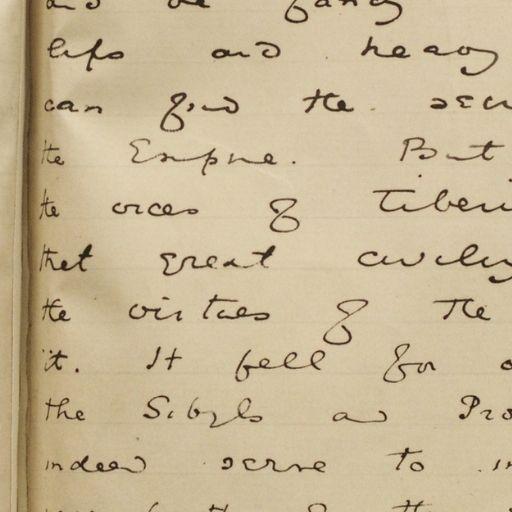 and the fancy
lips and heavy
can find the secr
the Empire. But
the vices of Tiberi
that great civiliz
the virtues of the
it. It fell for o
the Sibyls and Pro
indeed serve to in